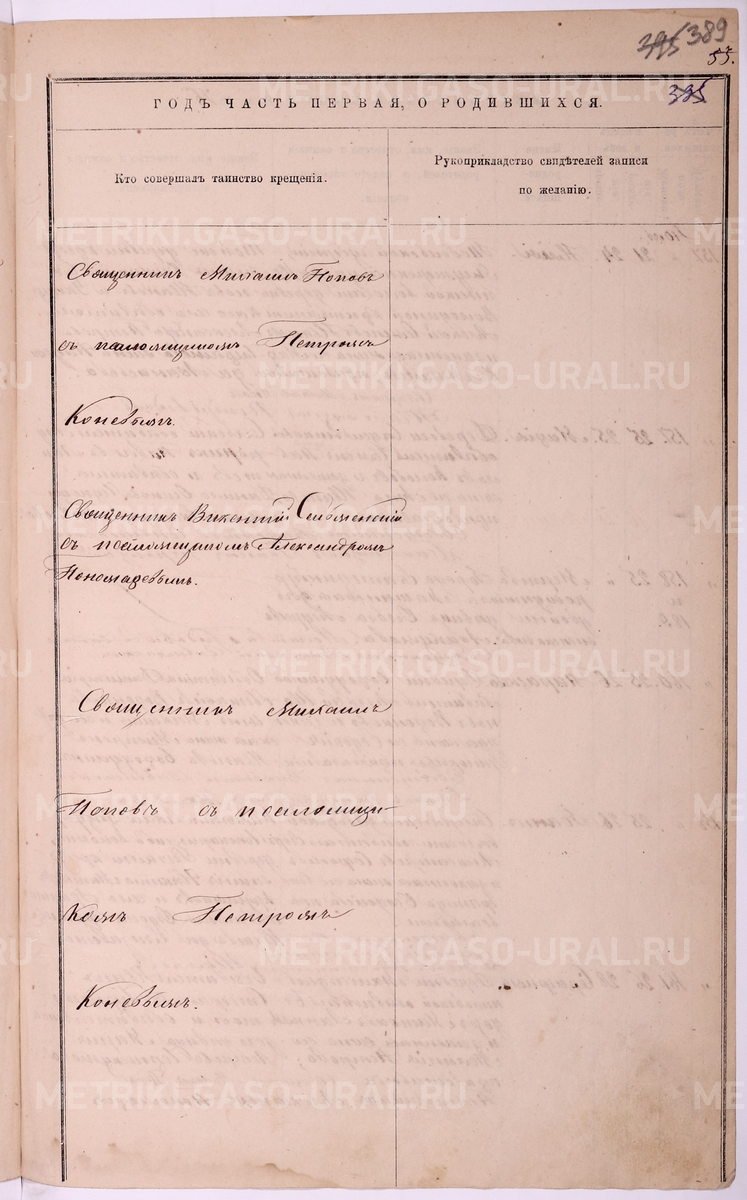 395 389
55.
395
ГОДЪ ЧАСТЬ ПЕРВАЯ, О РОДИВШИХСЯ.
Кто совершалъ таинство крещенія.
Рукоприкладство свидѣтелей записи
по желанію.
Священникъ Михаилъ Поповъ
съ псаломщикомъ Петромъ
Коневымъ.
Священникъ Викентій
съ псаломщикомъ Александромъ
Пономаревымъ.
Священникъ Михаилъ
Поповъ съ псаломщи-
комъ Петромъ
Коневымъ.
METRIKI.GASO-URAL.RU